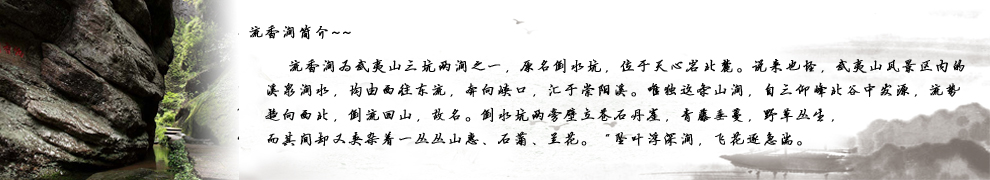 流香涧简介~~
流香涧为武夷山三坑两涧之一，原名倒水坑，位于天心岩北麓。说来也怪，武夷山风景区内的
溪泉涧水，均由西往东流，奔向峡口，汇于崇阳溪。唯独这条山涧，自三仰峰北谷中发源，流势
趋向西北，倒流回山，故名。倒水坑两旁壁立苍石丹崖，青藤垂蔓，野草丛生，
而其间却又夹杂着一丛丛山惠、石蒲、兰花。“坠叶浮深涧，飞花逐急湍。